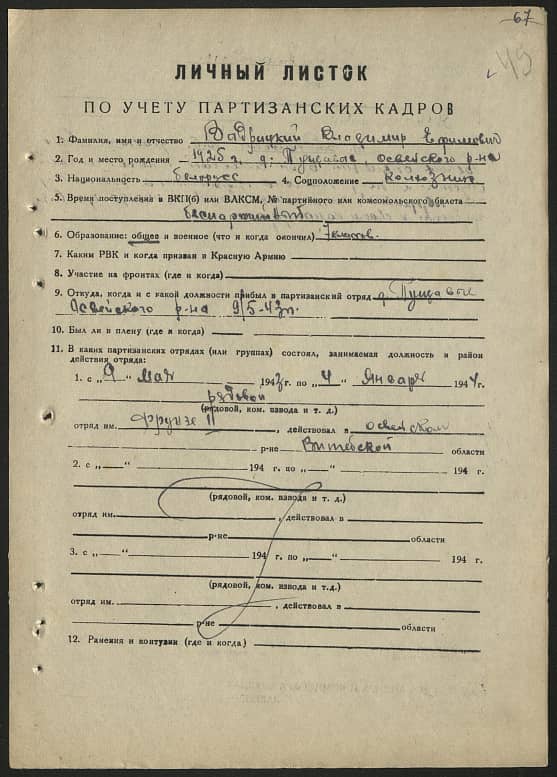 67
49
ЛИЧНЫЙ ЛИСТОК
ПО УЧЕТУ ПАРТИЗАНСКИХ КАДРОВ
1. Фамилия, имя и отчество Владимир Ефимович
2. Год и место рождения 1925 г. д. Освейского р-на
3. Национальность белорусс 4. Соцположение колхозник
5. Время поступления в ВКП(б) или ВЛКСМ, № партийного или комсомольского билета
беспартийный
6. Образование: общее и военное (что и когда окончил) 7 классов.
7. Каким РВК и когда призван в Красную Армию
8. Участие на фронтах (где и когда)
9. Откуда, когда и с какой должности прибыл в партизанский отряд д.
Освейского р-на 9/5-43г.
10. Был ли в плену (где и когда)
11. В каких партизанских отрядах (или группах) состоял, занимаемая должность и район
действия отряда:
1. с „9“ мая 1943 г. по „4“ Января 1944 г.
рядовой
(рядовой, ком. взвода и т. д.)
отряд им. Фрунзе II, действовал в освейском
р-не Витебской области
2. с „ “ 194 г. по „ “ 194 г.
(рядовой, ком. взвода и т. д.)
отряд им. , действовал в
р-не области
3. с „ “ 194 г. по „ “ 194 г.
(рядовой, ком. взвода и т.д.)
отряд им. , действовал в
р-не области
12. Ранения и контузии (где и когда)